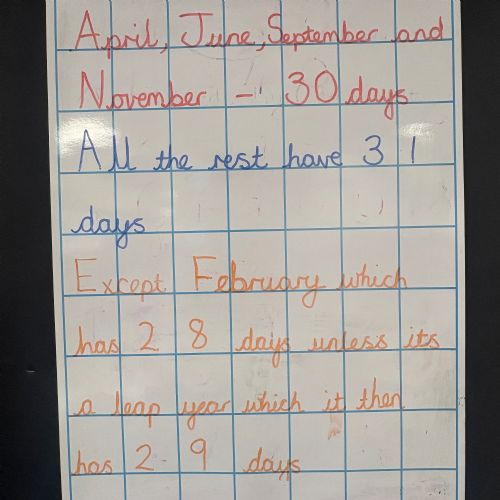 April, June, September and
November - 30 days
All the rest have 31
days
Except February which
has 28 days unless its
a leap year which it then
has 29 days